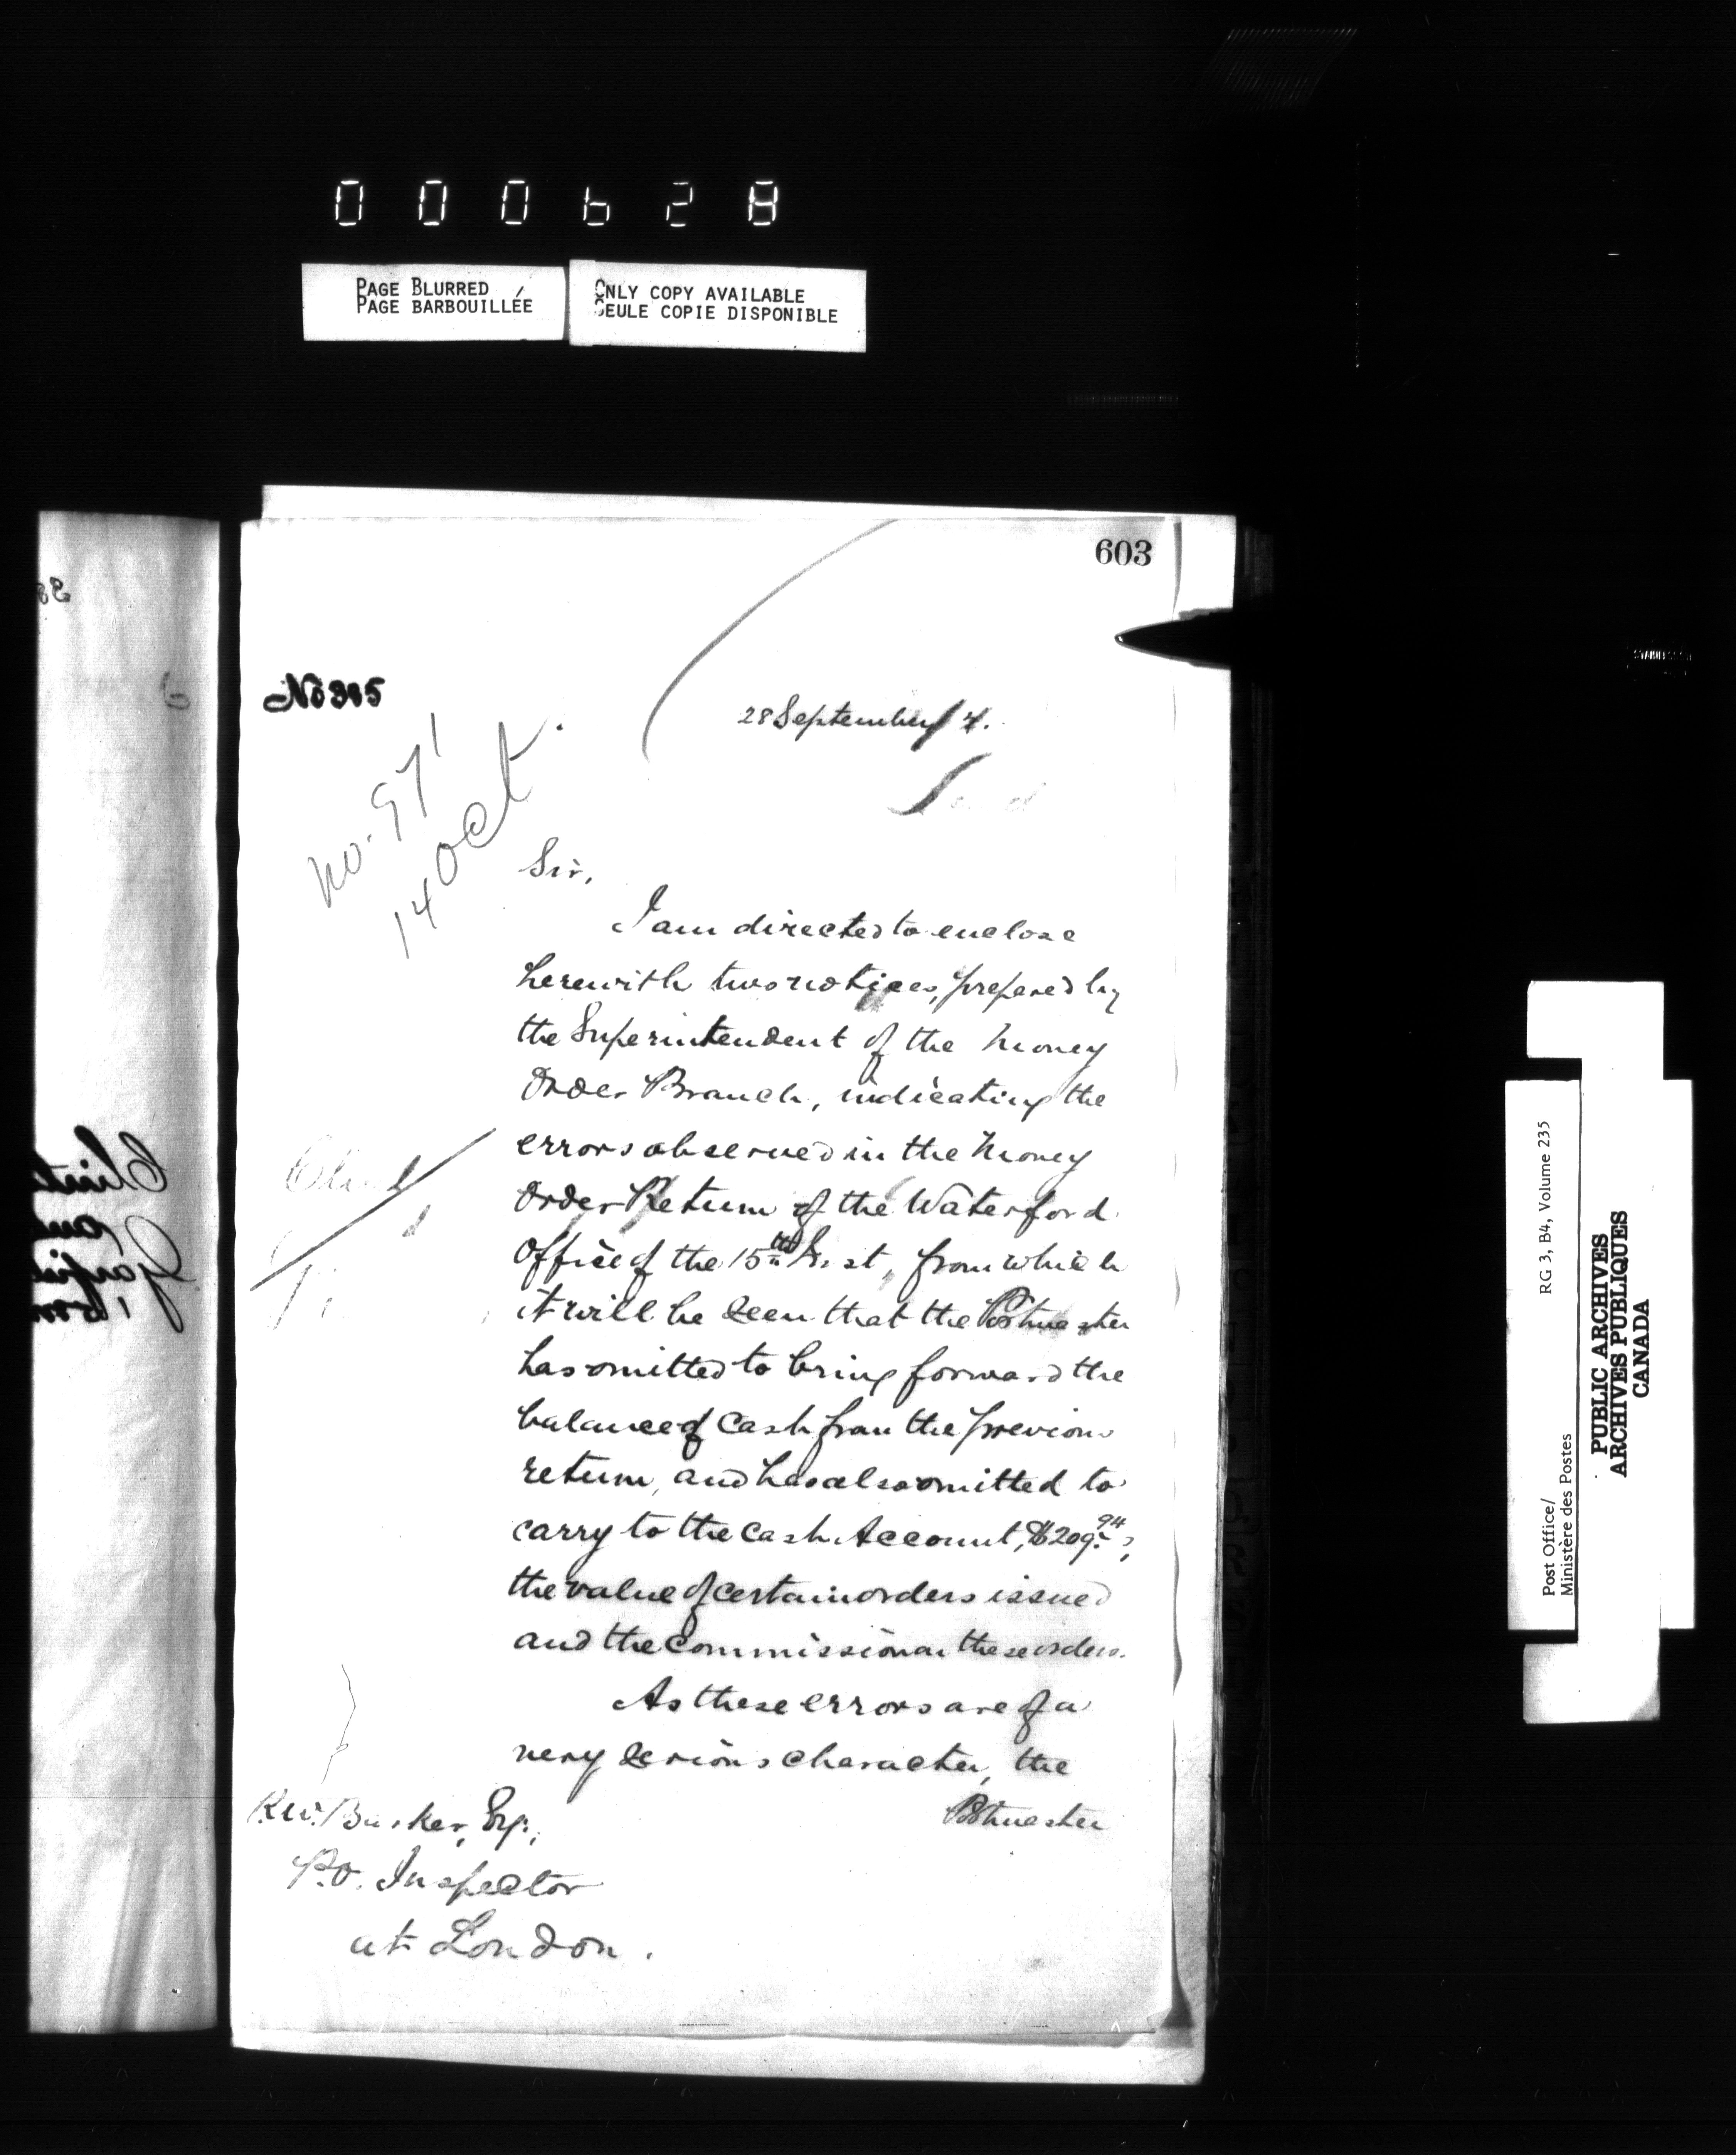 000628
PAGE BLURRED
PAGE BARBOUILLÉE
ONLY COPY AVAILABLE
SEULE COPIE DISPONIBLE
603
No 305
28 September 4.
No. 971
14 Oct.
Sir,
I am directed to enclose
herewith two notices, prepared by
the Superintendent of the Money
Order Branch, indicating the
errors observed in the Money
Order Return of the Waterford
Office of the 15th Inst, from which
it will be seen that the Postmaster
has omitted to bring forward the
balance of Cash from the previous
return, and has also omitted to
carry to the Cash Account, $209.94,
the value of certain orders issued
and the Commission on these orders.
As these errors are of a
very serious character, the
Postmaster
R.W. Barker, Esq.,
P.O. Inspector
at London.
Post Office/
Ministère des Postes
RG 3, B4, Volume 235
PUBLIC ARCHIVES
ARCHIVES PUBLIQUES
CANADA